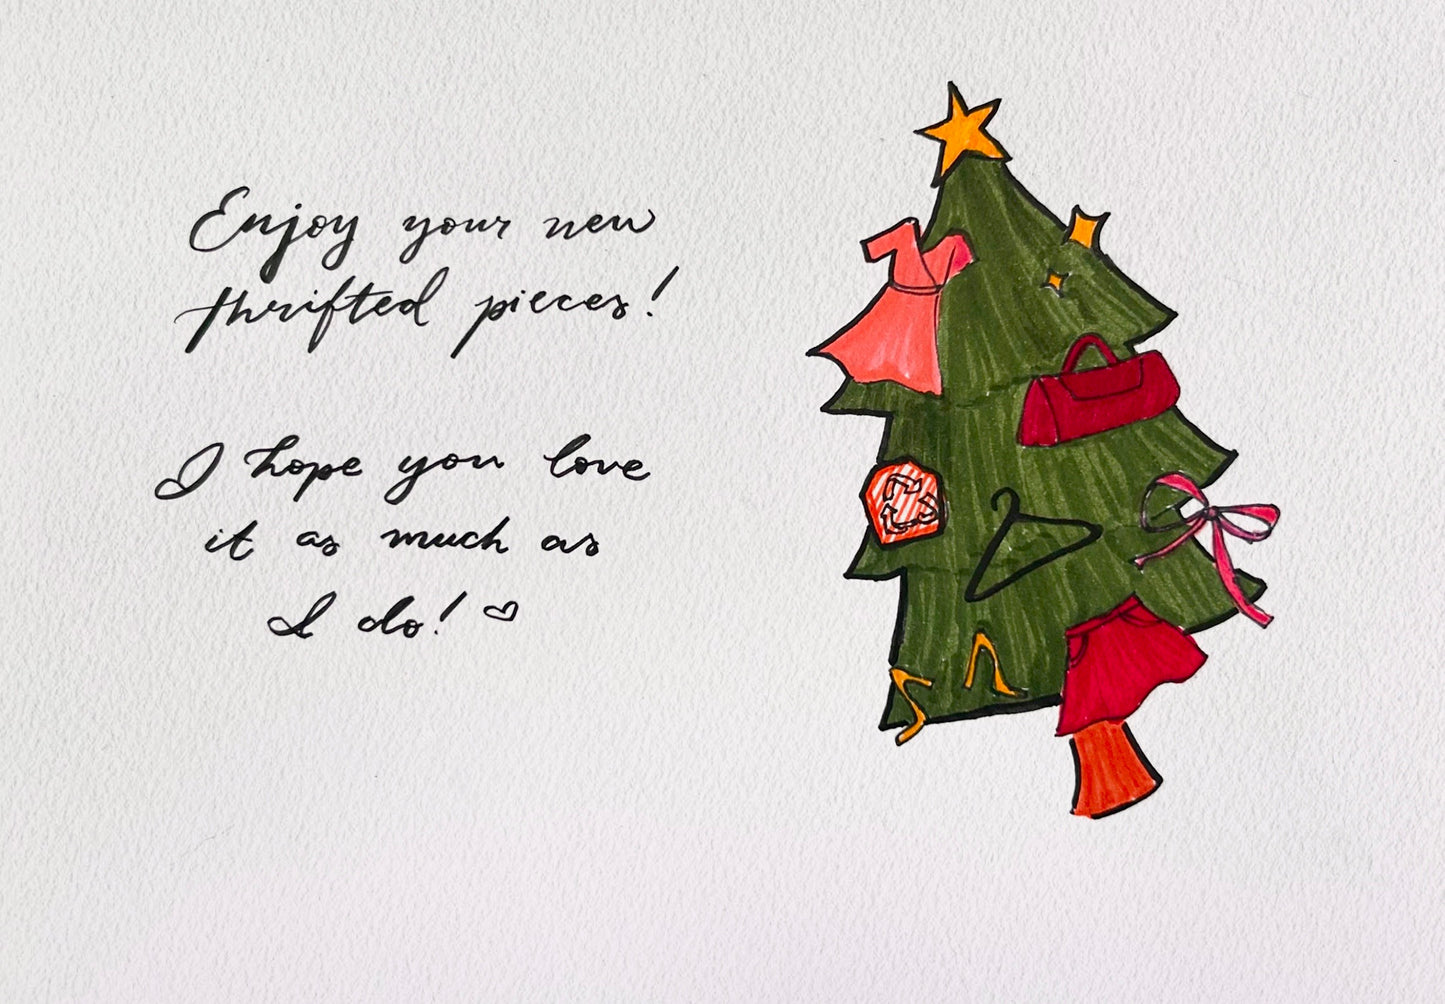 Enjoy your new
thrifted pieces!
I hope you love
it as much as
I do! ♡